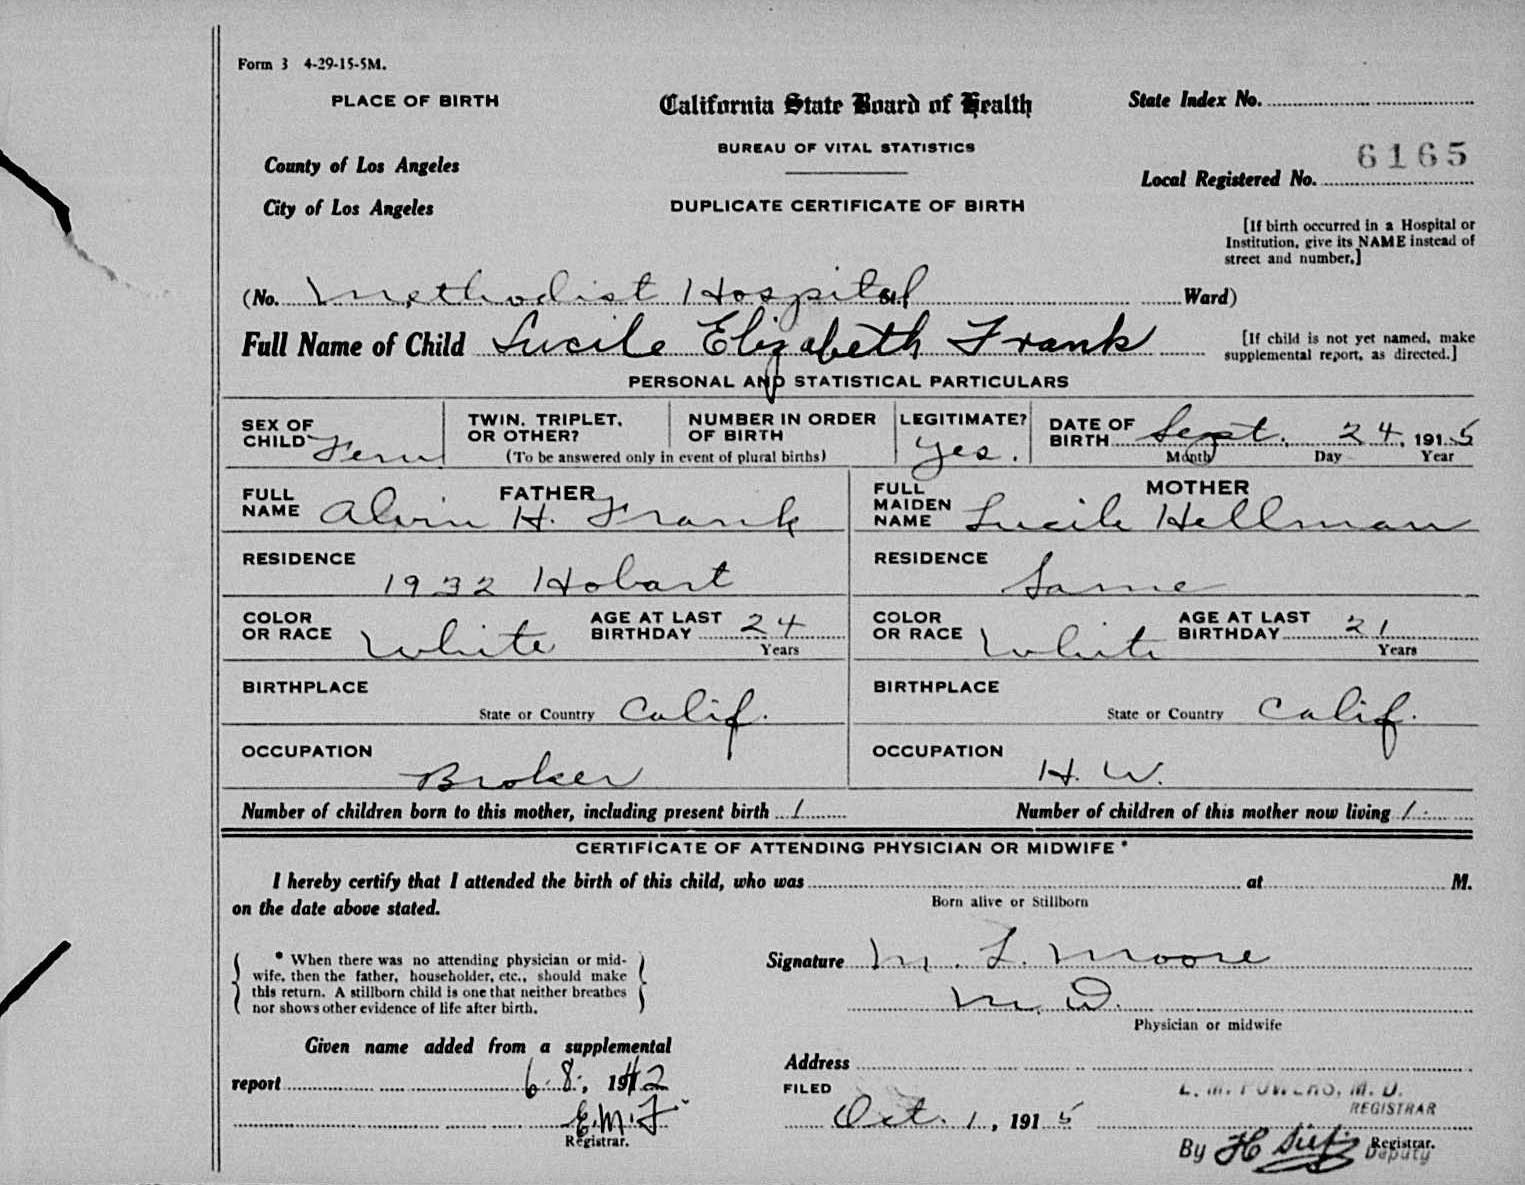 Form 3 4-29-15-5M.
PLACE OF BIRTH
California State Board of Health
State Index No.
BUREAU OF VITAL STATISTICS
County of Los Angeles
6165
Local Registered No.
City of Los Angeles
DUPLICATE CERTIFICATE OF BIRTH
[If birth occurred in a Hospital or
Institution, give its NAME instead of
street and number.]
(No. Methodist Hospital St. Ward)
Full Name of Child Lucile Elizabeth Frank
[If child is not yet named, make
supplemental report, as directed.]
PERSONAL AND STATISTICAL PARTICULARS
SEX OF
CHILD Fem
TWIN, TRIPLET,
OR OTHER?
NUMBER IN ORDER
OF BIRTH
(To be answered only in event of plural births)
LEGITIMATE?
yes.
DATE OF
BIRTH Sept. 24, 1915
Month Day Year
FULL
NAME
FATHER
Alvin H. Frank
FULL
MAIDEN
NAME
MOTHER
Lucile Hellman
RESIDENCE
1932 Hobart
RESIDENCE
Same
COLOR
OR RACE White
AGE AT LAST
BIRTHDAY 24
Years
COLOR
OR RACE White
AGE AT LAST
BIRTHDAY 21
Years
BIRTHPLACE
State or Country Calif.
BIRTHPLACE
State or Country Calif.
OCCUPATION
Broker
OCCUPATION
H. W.
Number of children born to this mother, including present birth 1
Number of children of this mother now living 1
CERTIFICATE OF ATTENDING PHYSICIAN OR MIDWIFE *
I hereby certify that I attended the birth of this child, who was at M.
Born alive or Stillborn
on the date above stated.
* When there was no attending physician or mid-
wife, then the father, householder, etc., should make
this return. A stillborn child is one that neither breathes
nor shows other evidence of life after birth.
Signature M. L. Moore
M. D.
Physician or midwife
Given name added from a supplemental
report 6-8-, 1942
E.M.F.
Registrar.
Address
FILED
Oct. 1, 1915
L. M. POWERS, M. D.
REGISTRAR
Registrar.
By H
Deputy